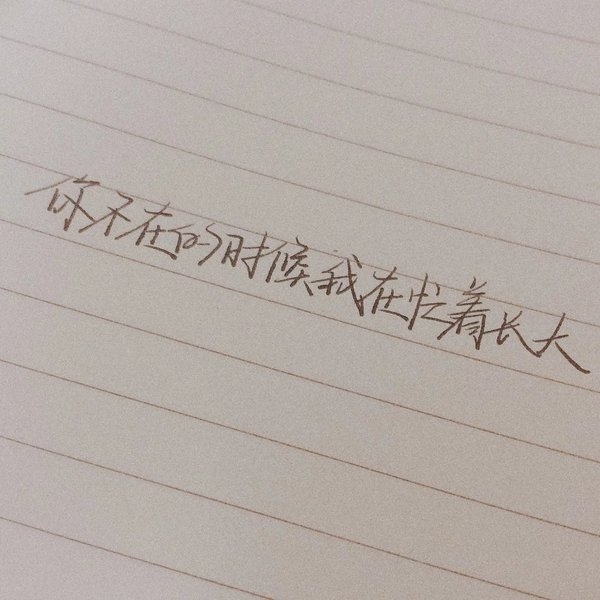 你不在的时候我在忙着长大